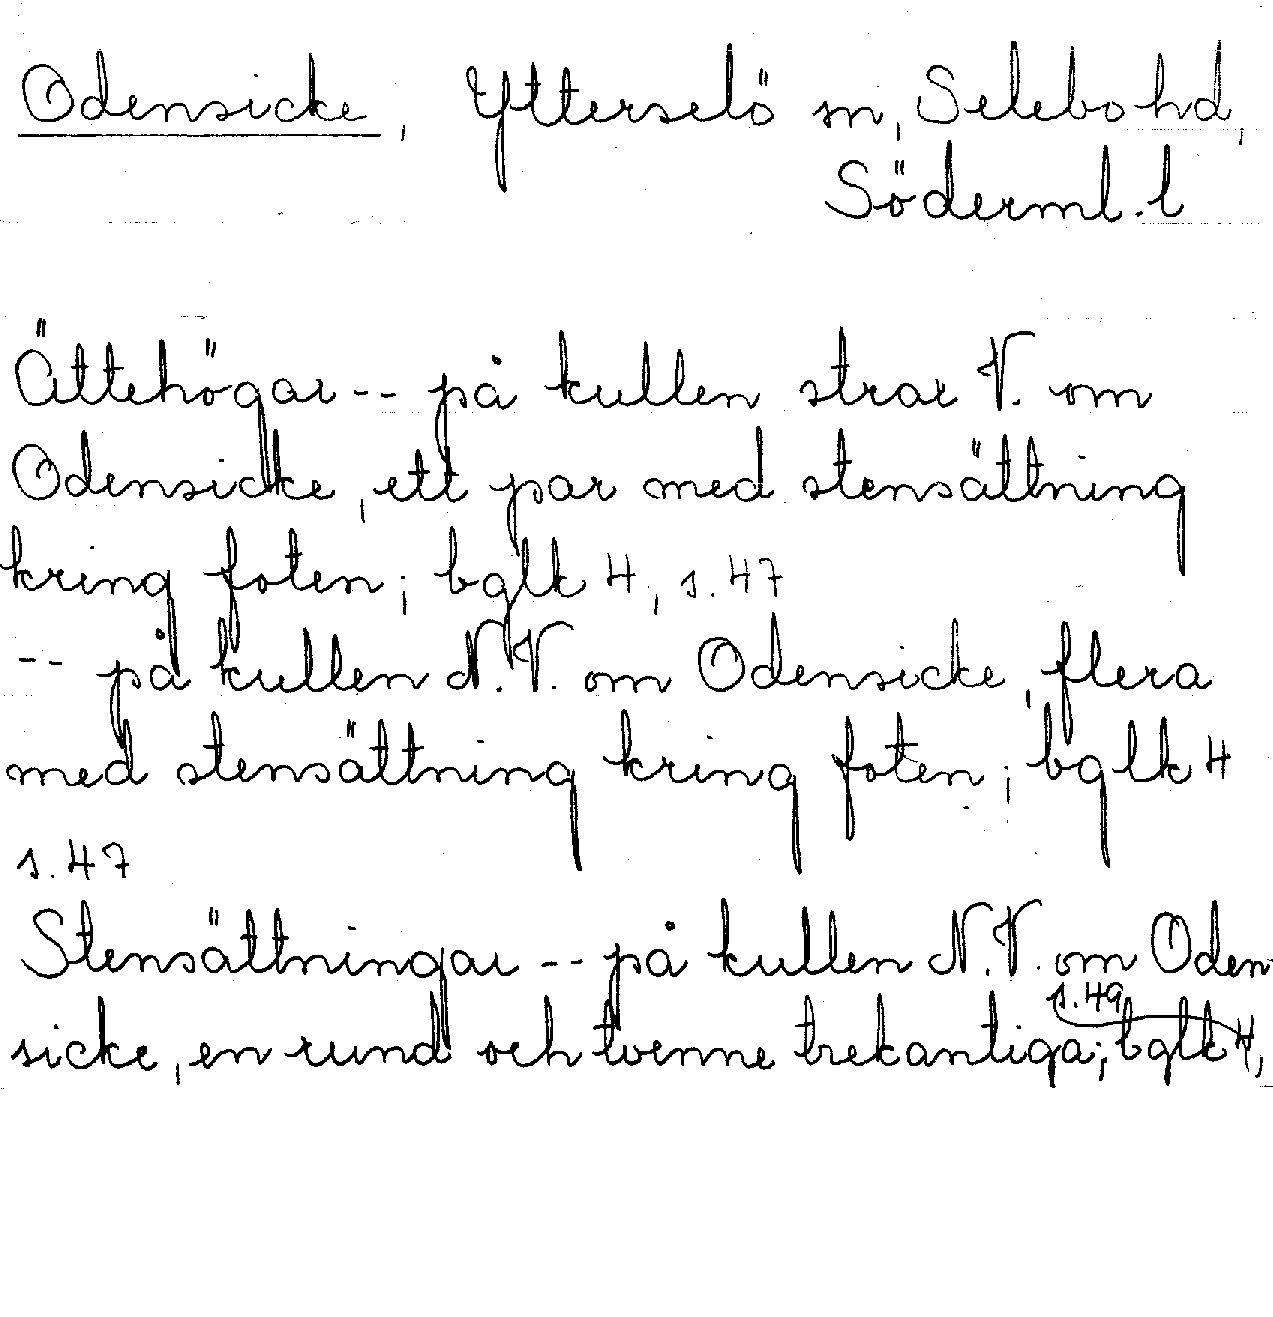 Odensicke, Ytterselö sn, Selebo hd,
Söderml. l
Ättehögar -- på kullen strax V. om
Odensicke, ett par med stensättning
kring foten; bglk 4, s. 47
-- på kullen N.V. om Odensicke, flera
med stensättning kring foten; bglk 4
s. 47
Stensättningar -- på kullen N.V. om Oden
sicke, en rund och tvenne trekantiga; bglk 4,
s. 49